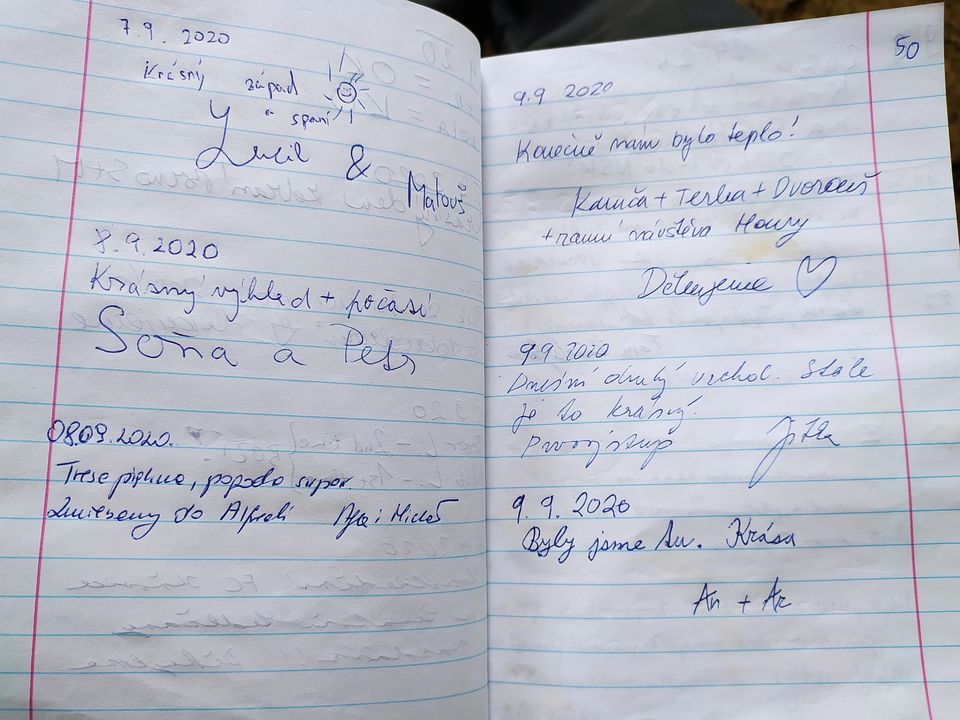 7.9.2020
Krásný západ
a spaní
&
Matouš
8.9.2020
Krásný výhled + počasí
Soňa a Petr
08.09.2020.
Trasa piękna, pogoda super.
Zmierzamy do Alfredi i Michał
50
9.9.2020
Konečně nám bylo teplo!
+ Terka +
+ ranní návštěva Honzy
Děkujeme
9.9.2020
Dnešní druhý vrchol. Stále
je to krásný.
Prvovýstup Jitka
9.9.2020
Byly jsme tu. Krása